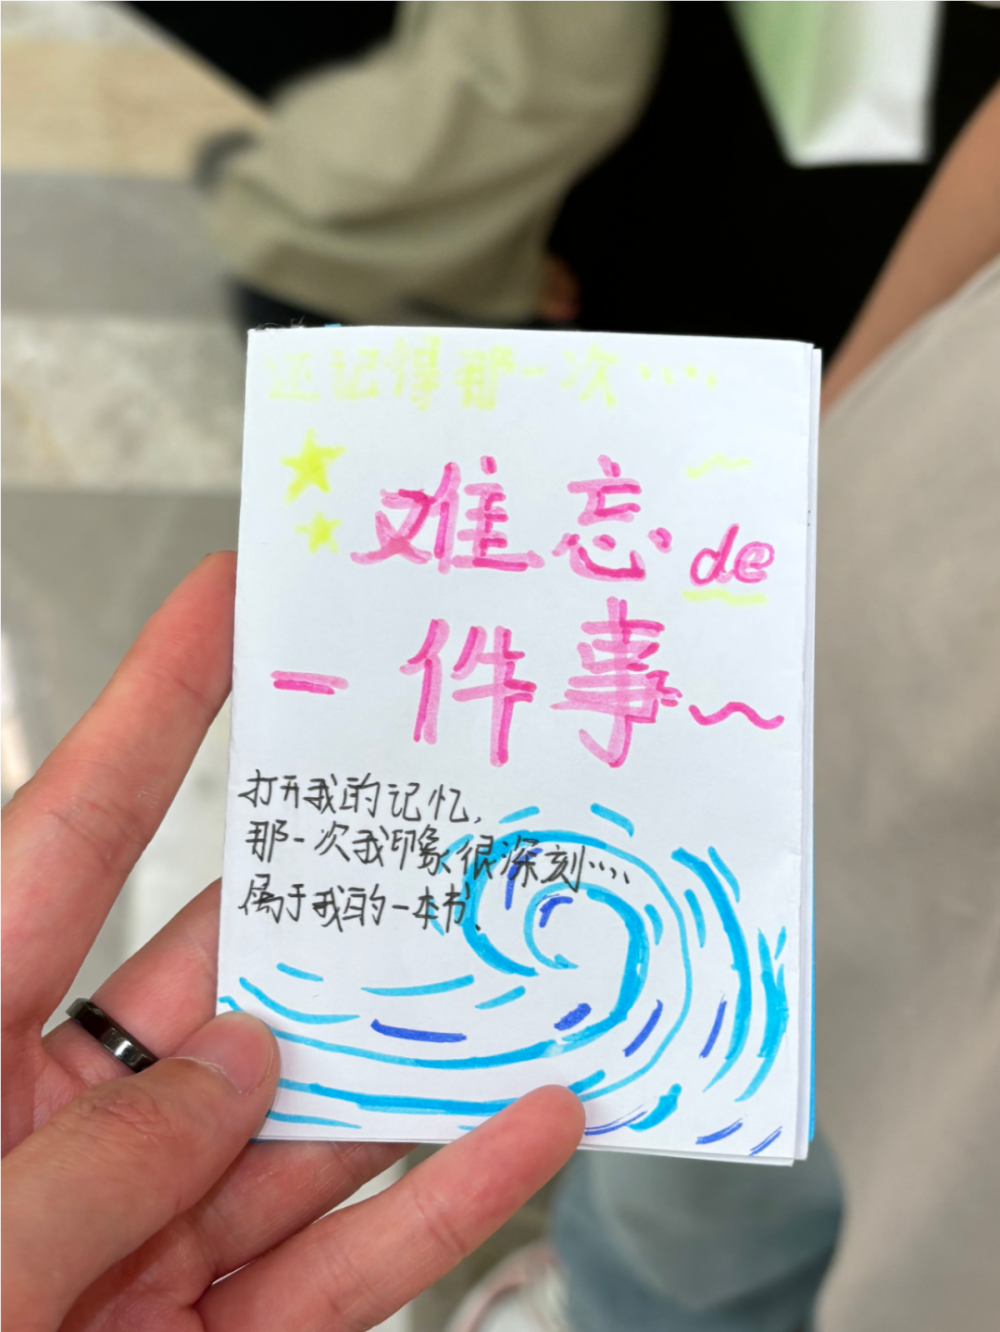 还记得那一次····
难忘de
一件事~
打开我的记忆,
那一次我印象很深刻····
属于我的一本书、